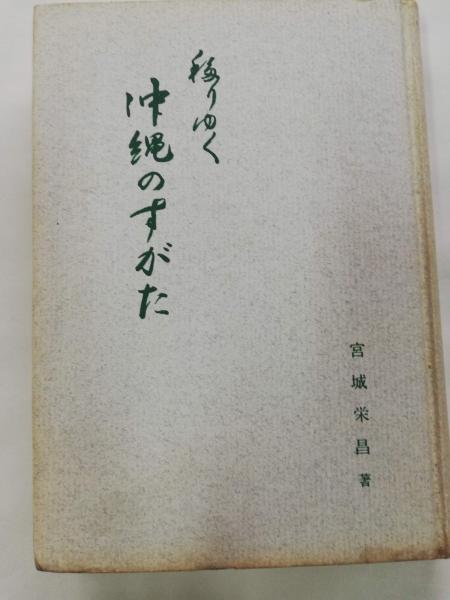 移りゆく
沖縄のすがた
宮城栄昌著